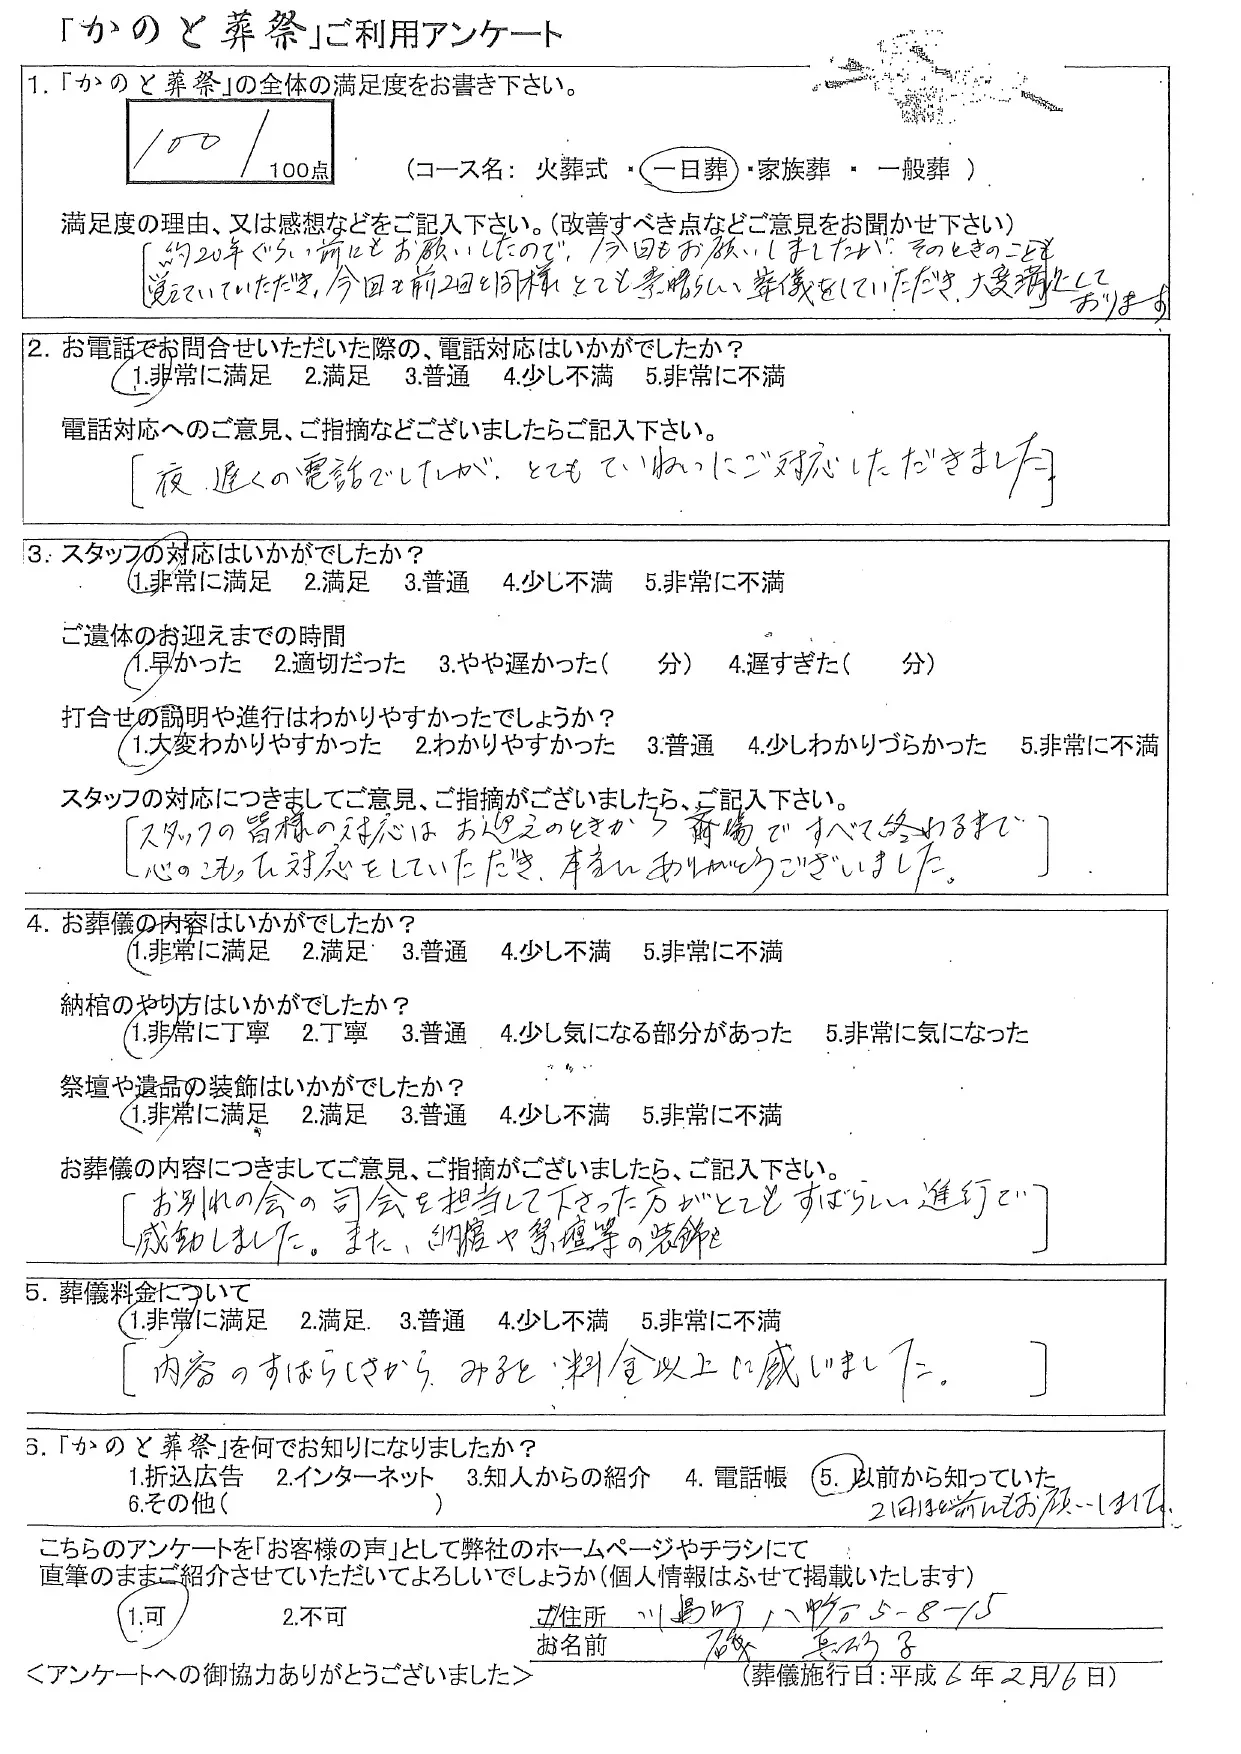 「かのと葬祭」ご利用アンケート
1.「かのと葬祭」の全体の満足度をお書き下さい。
100/100点 (コース名: 火葬式 ・ 一日葬 ・ 家族葬 ・ 一般葬 )
満足度の理由、又は感想などをご記入下さい。(改善すべき点などご意見をお聞かせ下さい)
約20年ぐらい前にもお願いしたので、今回もお願いしましたが、そのときのことも
覚えていていただき、今回も前2回と同様とても素晴らしい葬儀をしていただき、大変満足して
おります
2. お電話でお問合せいただいた際の、電話対応はいかがでしたか?
1.非常に満足 2.満足 3.普通 4.少し不満 5.非常に不満
電話対応へのご意見、ご指摘などございましたらご記入下さい。
[夜、遅くの電話でしたが、とてもていねいにご対応しただきました]
3. スタッフの対応はいかがでしたか?
1.非常に満足 2.満足 3.普通 4.少し不満 5.非常に不満
ご遺体のお迎えまでの時間
1.早かった 2.適切だった 3.やや遅かった( 分) 4.遅すぎた( 分)
打合せの説明や進行はわかりやすかったでしょうか?
1.大変わかりやすかった 2.わかりやすかった 3.普通 4.少しわかりづらかった 5.非常に不満
スタッフの対応につきましてご意見、ご指摘がございましたら、ご記入下さい。
[スタッフの皆様の対応はお迎えのときから斎場ですべて終わるまで
心のこもった対応をしていただき、本当にありがとうございました。]
4. お葬儀の内容はいかがでしたか?
1.非常に満足 2.満足 3.普通 4.少し不満 5.非常に不満
納棺のやり方はいかがでしたか?
1.非常に丁寧 2.丁寧 3.普通 4.少し気になる部分があった 5.非常に気になった
祭壇や遺品の装飾はいかがでしたか?
1.非常に満足 2.満足 3.普通 4.少し不満 5.非常に不満
お葬儀の内容につきましてご意見、ご指摘がございましたら、ご記入下さい。
[お別れの会の司会を担当して下さった方がとてもすばらしい進行で
感動しました。また、納棺や祭壇等の装飾も]
5. 葬儀料金について
1.非常に満足 2.満足 3.普通 4.少し不満 5.非常に不満
[内容のすばらしさから、みると、料金以上に感いました。]
6.「かのと葬祭」を何でお知りになりましたか?
1.折込広告 2.インターネット 3.知人からの紹介 4. 電話帳 5. 以前から知っていた
6.その他( ) 2回ほど前にもお願いしました。
こちらのアンケートを「お客様の声」として弊社のホームページやチラシにて
直筆のままご紹介させていただいてよろしいでしょうか(個人情報はふせて掲載いたします)
1.可 2.不可 ご住所 川島町八幡5-8-15
お名前 磯
<アンケートへの御協力ありがとうございました> (葬儀施行日:平成6年2月16日)